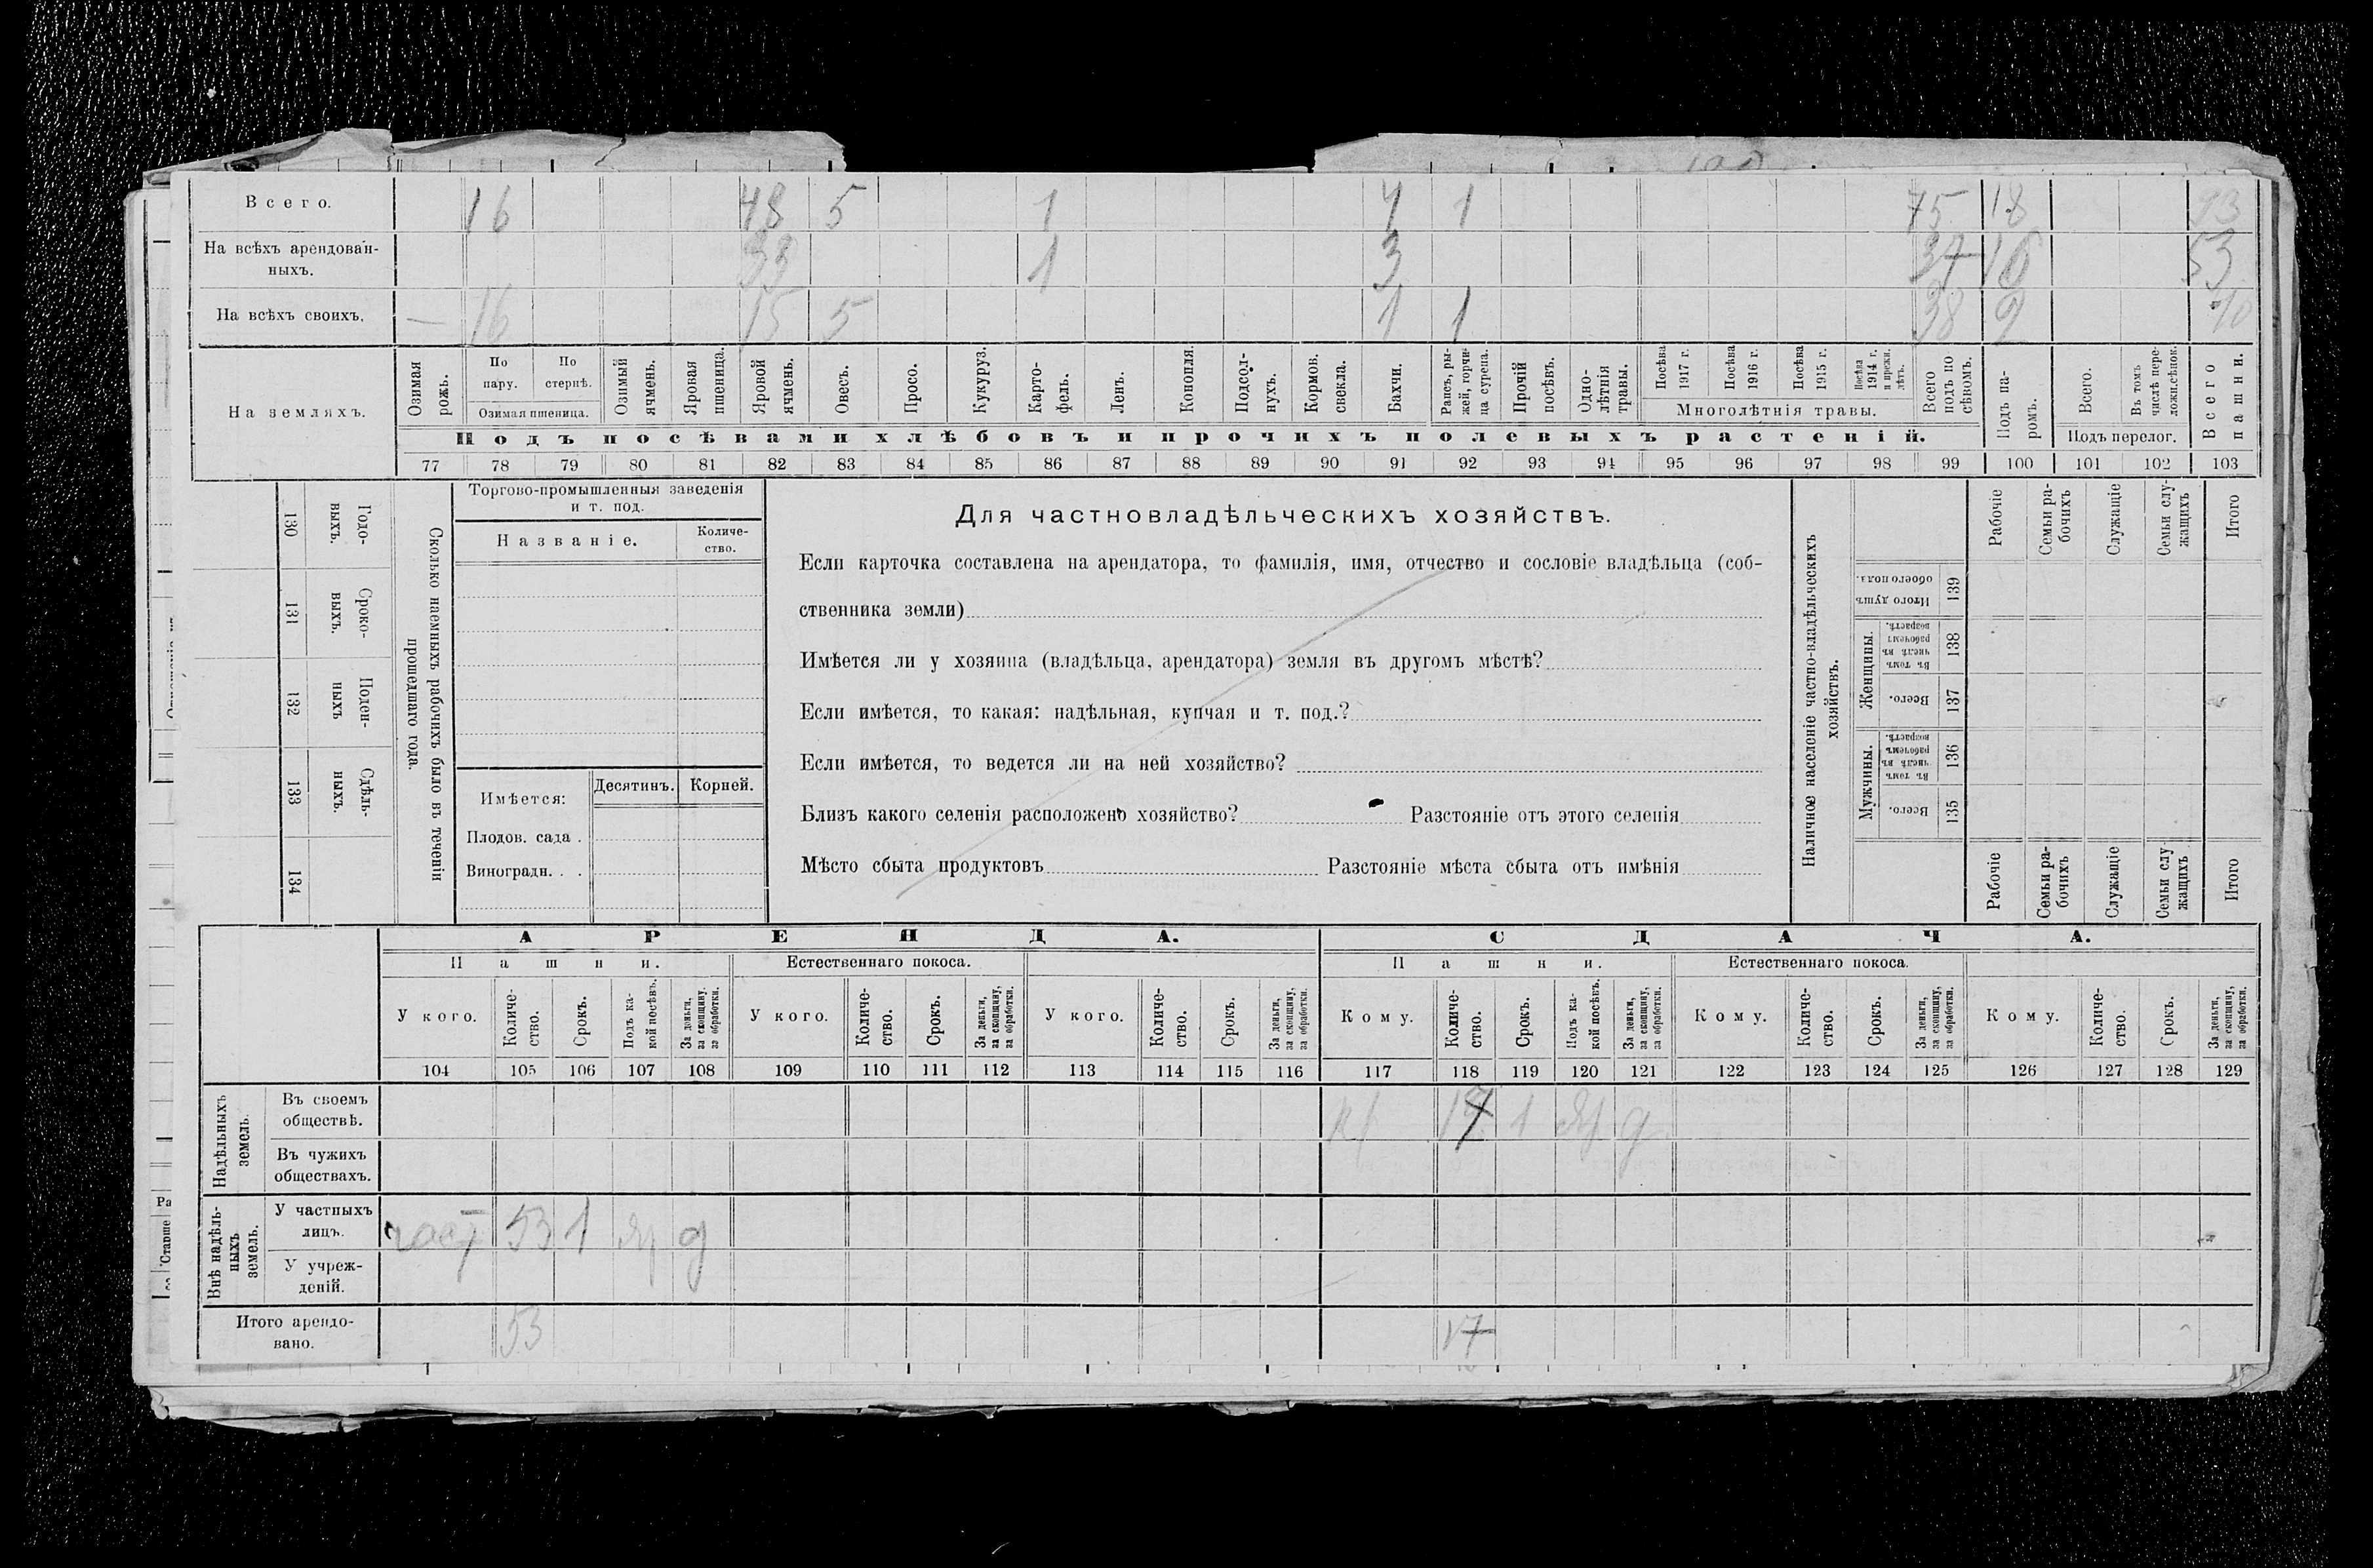 Всего. 16 48 5 1 4 1 75 18 93
На всѣхъ арендован-
ныхъ. 33 1 3 37 16 53
На всѣхъ своихъ. — 16 15 5 1 1 38 2
На земляхъ.
Озимая рожь.
По пару.
По стернѣ.
Озимая пшеница.
Озимый ячмень.
Яровая пшеница.
Яровой ячмень.
Овесъ.
Просо.
Кукуруз.
Карто-
фель.
Ленъ.
Конопля.
Подсол-
нухъ.
Кормов.
свекла.
Бахчи.
Рапсъ, ры-
жей, горчи-
ца сурепа.
Прочій
посѣвъ.
Одно-
лѣтнія
травы.
Посѣва
1917 г.
Посѣва
1916 г.
Посѣва
1915 г.
Посѣва
1914 г.
и прежн.
лѣтъ.
Многолѣтнія травы.
Всего
подъ по
сѣвомъ.
Подъ па-
ромъ.
Всего.
Въ томъ
числѣ пере-
лож.сѣнок.
Подъ перелог.
Всего
пашни.
Подъ посѣвами хлѣбовъ и прочихъ полевыхъ растеній.
77 78 79 80 81 82 83 84 85 86 87 88 89 90 91 92 93 94 95 96 97 98 99 100 101 102 103
Годо-
выхъ.
130
Сроко-
выхъ.
131
Поден-
ныхъ
132
Сдѣль-
ныхъ.
133
134
Сколько наемныхъ рабочихъ было въ теченіи
прошедшаго года.
Торгово-промышленныя заведенія
и т. под.
Названіе.
Количе-
ство.
Имѣется:
Десятинъ.
Корней.
Плодов. сада .
Виноградн. . .
Для частновладѣльческихъ хозяйствъ.
Если карточка составлена на арендатора, то фамилія, имя, отчество и сословіе владѣльца (соб-
ственника земли)
Имѣется ли у хозяина (владѣльца, арендатора) земля въ другомъ мѣстѣ?
Если имѣется, то какая: надѣльная, купчая и т. под.?
Если имѣется, то ведется ли на ней хозяйство?
Близъ какого селенія расположено хозяйство? Разстояніе отъ этого селенія
Мѣсто сбыта продуктовъ Разстояніе мѣста сбыта отъ имѣнія
Наличное населеніе частно-владѣльческихъ
хозяйствъ.
Итого душъ
обоего пола.
139
Женщины.
Въ томъ
числѣ въ
рабочемъ
возрастѣ.
138
Всего.
137
Мужчины.
Въ томъ
числѣ въ
рабочемъ
возрастѣ.
136
Всего.
135
Рабочіе
Семьи ра-
бочихъ
Служащіе
Семьи слу-
жащихъ
Итого
Рабочіе
Семьи ра-
бочихъ
Служащіе
Семьи слу
жащихъ
Итого
АРЕНДА. СДАЧА.
Пашни. Естественнаго покоса. Пашни. Естественнаго покоса.
У кого.
Количе-
ство.
Срокъ.
Подъ ка-
кой посѣвъ.
За деньги,
за скопщину,
за обработки.
У кого.
Количе-
ство.
Срокъ.
За деньги,
за скопщину,
за обработки.
У кого.
Количе-
ство.
Срокъ.
За деньги,
за скопщину,
за обработки.
Кому.
Количе-
ство.
Срокъ.
Подъ ка-
кой посѣвъ.
За деньги,
за скопщину,
за обработки.
Кому.
Количе-
ство.
Срокъ.
За деньги,
за скопщину,
за обработки.
Кому.
Количе-
ство.
Срокъ.
За деньги,
за скопщину,
за обработки.
104 105 106 107 108 109 110 111 112 113 114 115 116 117 118 119 120 121 122 123 124 125 126 127 128 129
Надѣльныхъ
земель.
Въ своемъ
обществѣ. 17 1 яр д
Въ чужихъ
обществахъ.
Внѣ надѣль-
ныхъ
земель.
У частныхъ
лицъ. част 53 1 яр д
У учреж-
деній.
Итого арендо-
вано. 53 17
Ра
Ставше